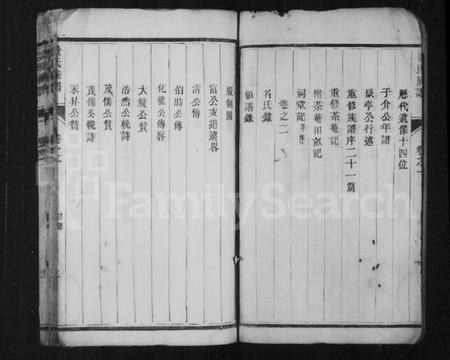 歷代遺像十四位
子介公年譜
嶽亭公行述
重修族譜序二十一篇
重修茶菴記
附茶菴田畝記
祠堂記
卷之二
名氏錄
領譜錄
服制圖
富公支追遠畧
清公傳
伯時公傳
化龍公傳畧
大畯公贊
浩然公輓詩
茂儒公贊
茂儒公輓詩
永昇公贊
氏族譜
卷之一
FamilySearch